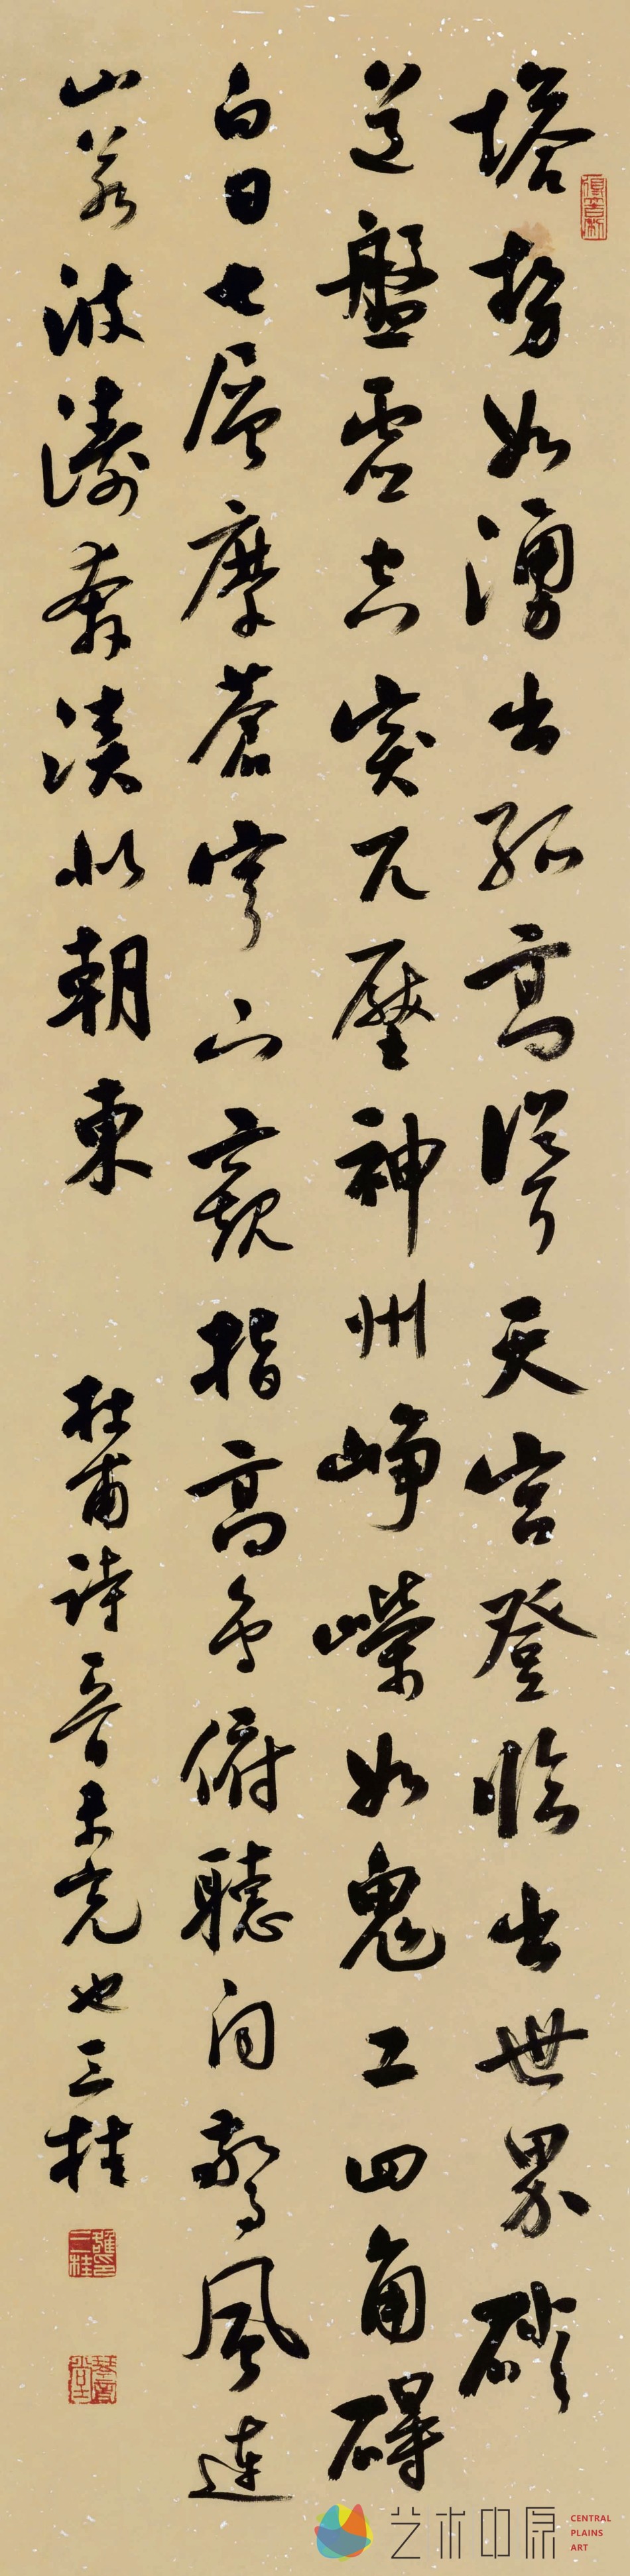 塔勢如湧出孤高聳天宮登臨出世界磴
道盤虛空突兀壓神州崢嶸如鬼工四角礙
白日七層摩蒼穹下窺指高鳥俯聽聞驚風連
山若波濤奔湊似朝東
杜甫詩 未 也三桂
艺术中原
CENTRAL
PLAINS
ART